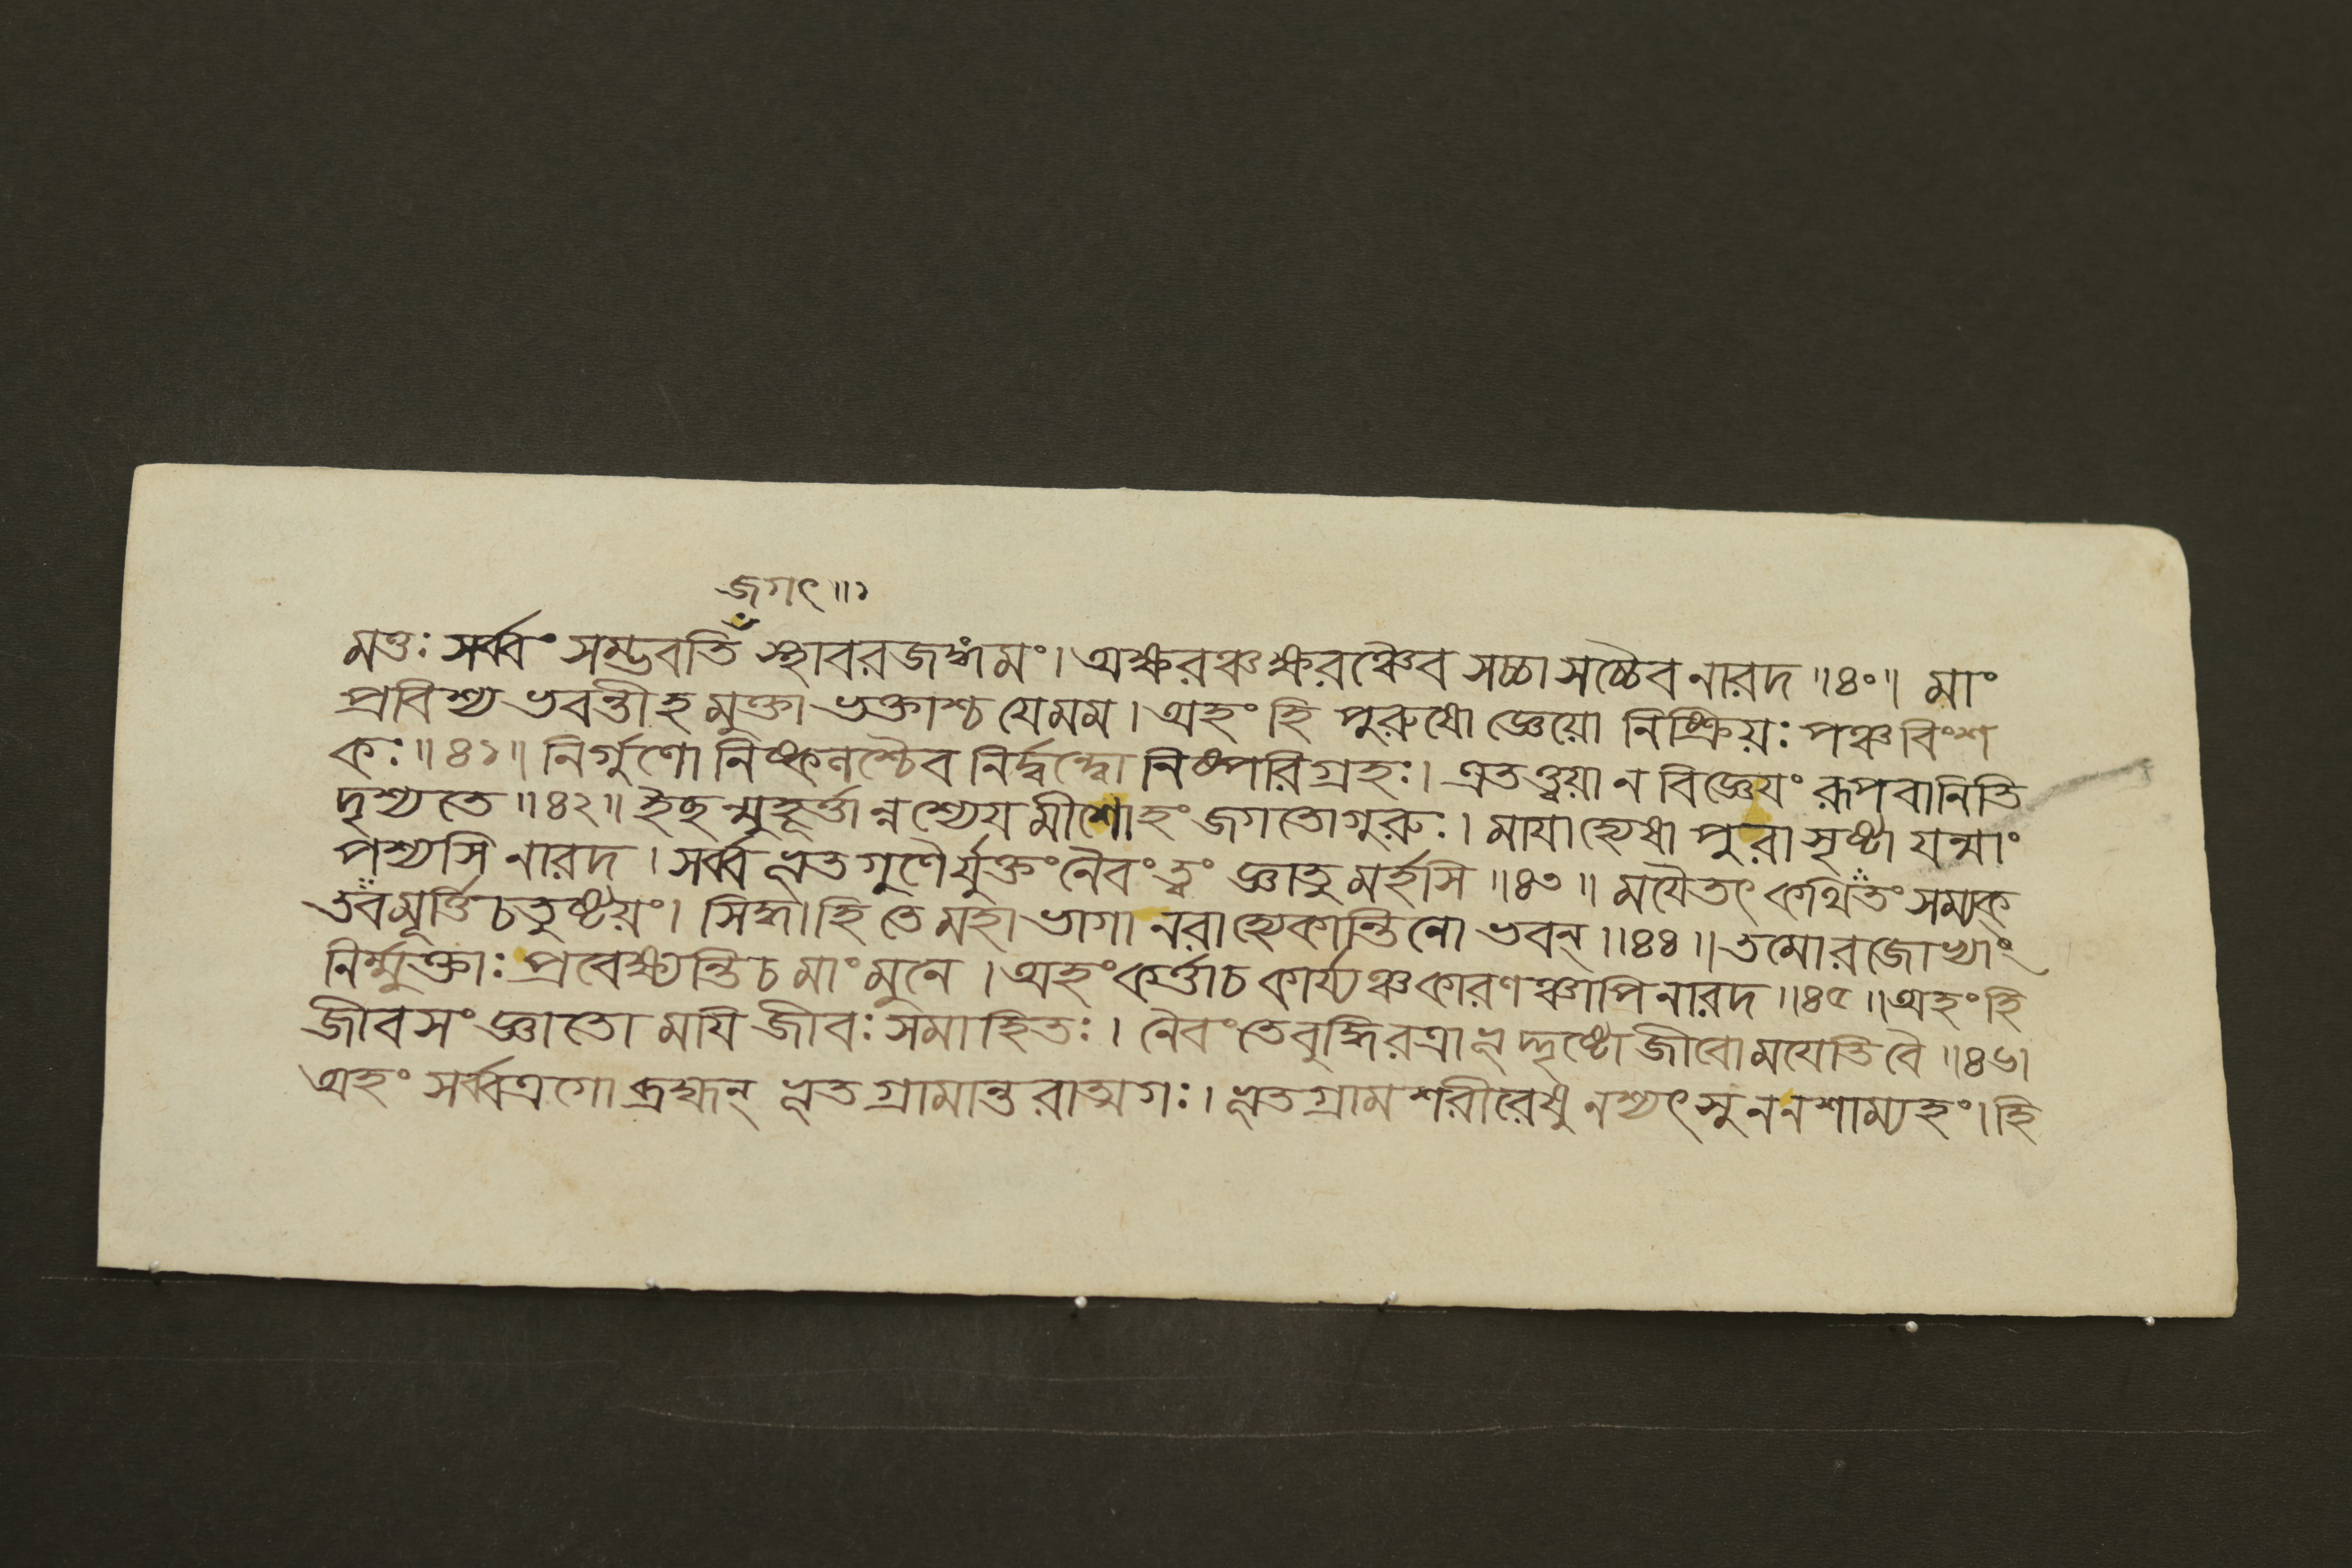 জগৎ ॥ ১
মত্তঃ সর্ব্বং সম্ভবতি স্থাবরজঙ্গমং। অক্ষরঞ্চ ক্ষরঞ্চৈব সচ্চাসচ্চৈব নারদ ॥ ৪০ ॥ মাং
প্রবিশ্য ভবন্তীহ মুক্তা ভক্তাশ্চ যে মম । অহং হি পুরুষো জ্ঞেয়ো নিষ্ক্রিয়ঃ পঞ্চবিংশ
কঃ ॥ ৪১ ॥ নির্গুণো নিষ্কলশ্চৈব নির্দ্বন্দ্বো নিষ্পরিগ্রহঃ । এতত্ত্বয়া ন বিজ্ঞেযং রূপবানিতি
দৃশ্যতে ॥ ৪২ ॥ ইছন্মুহূর্ত্তান্নশ্যেযমীশোহং জগতো গুরুঃ । মাযাহ্যেষা পুরা সৃষ্টা যন্মাং
পশ্যসি নারদ । সর্ব্বভূতগুণৈর্যুক্তং নৈবং ত্বং জ্ঞাতুমর্হসি ॥ ৪৩ ॥ মযৈতৎ কথিতং সম্যক্
তব মূর্ত্তিচতুষ্টয়ং । সিদ্ধা হি তে মহাভাগা নরা হ্যেকান্তিনো ভবন্ ॥ ৪৪ ॥ তমোরজোভ্যাং
নির্ম্মুক্তাঃ প্রবেক্ষ্যন্তি চ মাং মুনে । অহং কর্ত্তা চ কার্য্যঞ্চ কারণঞ্চাপি নারদ ॥ ৪৫ ॥ অহং হি
জীবসংজ্ঞাতো মযি জীবঃ সমাহিতঃ । নৈবং তে বুদ্ধিরত্রাভূদ্দৃষ্টো জীবো মযেতি বৈ ॥ ৪৬।
অহং সর্ব্বত্রগো ব্রহ্মন্ ভূতগ্রামান্তরাত্মগঃ । ভূতগ্রামশরীরেষু নশ্যৎসু ন নশাম্যহং। হি